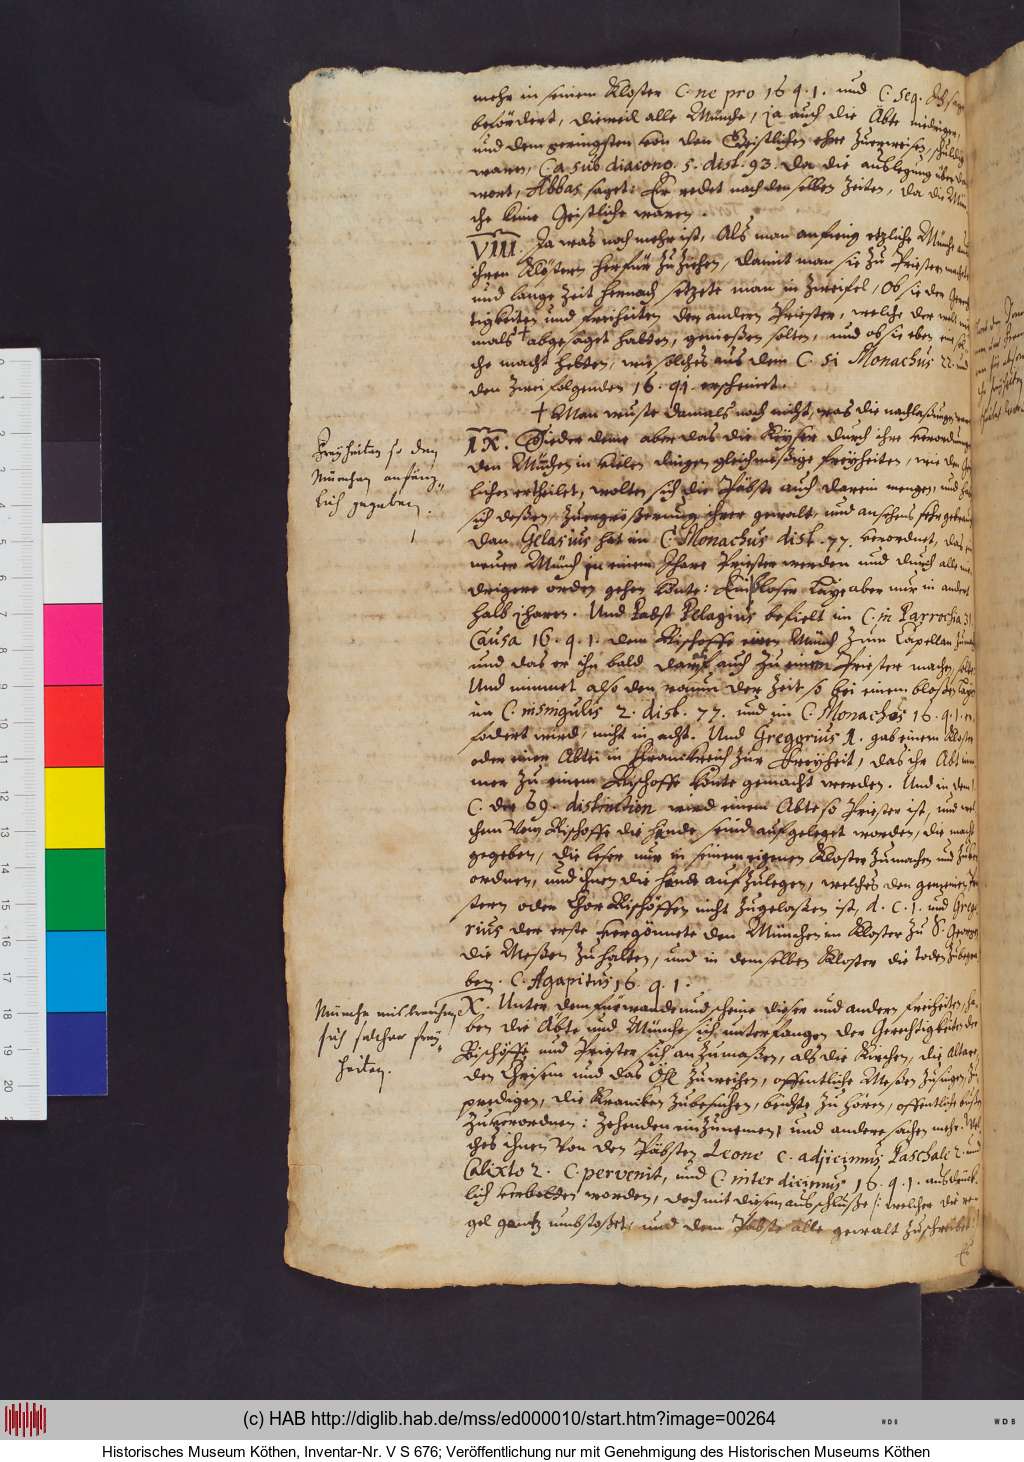 mehr in seinem Kloster C. ne pro 16 q. 1. und C. seq.
befördert, dieweil alle Münche, ja auch die Äbte niedriger,
und dem geringsten von den Geistlichen ehre zuerweisen, schuldig
waren, C. a subdiacono. 5. dist. 93. da die auslegung über das
wort, Abbas saget: Er redet nach denselben Zeiten, da die Mün
che keine Geistliche waren.
VIII. Ja was noch mehr ist, Als man anfieng etzliche Münche aus
ihren Klöstern herfür zu ziehen, damit man sie zu Priestern machte
und lange Zeit hernach setzete man in Zweifel, Ob sie den
tigkeiten und freiheiten der andern Priester, welche der welt
mals + abgesaget hatten, geniessen solten, und ob sie eben eine sol
che macht hetten, wie solches aus dem C. si Monachus 22. und
den zwei folgenden 16. q. 1. erscheinet.
+ Man wuste damals noch nicht, was die nachlaßungen
IX. Wieder deme aber das die Keyser durch ihre verordnungen
den München in vielen dingen gleichmäßige freyheiten, wie den
lichen ertheilet, wolten sich die Päbste auch darein mengen, und
sich deßen, zuergrößerung ihrer gewalt, und ansehens
Dan Gelasius hat im C. Monachus dist. 77. verordnet, das ein
neuer Münch in einem Jhare Priester werden und durch alle nie
drigere orden gehen könte: Ein bloser Läye aber nur in andert
halb Jharen. Und Pabst Pelagius befielt im C. in Parrochia 31.
Causa 16. q. 1. dem Bischoffe einen Münch zum Capellan
und das er ihn bald darauf auch zu einem Priester machen solte.
Und nimmet also den raum der Zeit so bei einem bloßen Läyen
im C. in singulis 2. dist. 77. und im C. Monachos 16. q. 1. er
fodert wird, nicht in acht. Und Gregorius 1. gab einem Kloster
oder einer Abtei in Franckreich zur Freyheit, das ihr Abt im
mer zu einem Bischoffe könte gemacht werden. Und in dem
C. der 69. distinction wird einem Abte so Priester ist, und wel
chem vom Bischoffe die hände seind aufgeleget worden, die macht
gegeben, die leser nur in seinem eigenen Kloster zu machen und zuver
ordnen, und ihnen die hände aufzulegen, welches den gemeinen Prie
stern oder Chor Bischöffen nicht zugelaßen ist, d. C. 1. und Grego
rius der erste vergönnete den München im Kloster zu S. Georgen
die Meßen zu halten, und in demselben Kloster die Toden zubegra
ben. C. Agapitus 16. q. 1.
X. Unter dem fürwande und scheine dieser und andern freiheiten, ha
ben die Äbte und Münche sich unterfangen der Gerechtigkeiten der
Bischöffe und Priester sich anzumaßen, als die Kirchen, die Altare,
den Chrisem und das Öhl zu weihen, offentliche Meßen zu singen, zu
predigen, die krancken zubesuchen, beichte zu hören, offentliche bußen
zuverordnen: Zehenden einzunemen, und andere sachen mehr. Wel
ches ihnen von den Päbsten Leone C. adjicimus, Paschale 2. und
Calixto 2. C. pervenit, und C. interdicimus 16. q. 1. ausdrück
lich verbotten worden, doch mit diesem ausschluße /: welcher die re
gel gantz umbstoßet: und dem Päbste alle gewalt zuschreibet :/
Freyheiten so den
München anfäng„
lich gegeben.
Münche misbrauchen
sich solcher frey„
heiten.
(c) HAB http://diglib.hab.de/mss/ed000010/start.htm?image=00264
WDB
WDB
Historisches Museum Köthen, Inventar-Nr. V S 676; Veröffentlichung nur mit Genehmigung des Historischen Museums Köthen